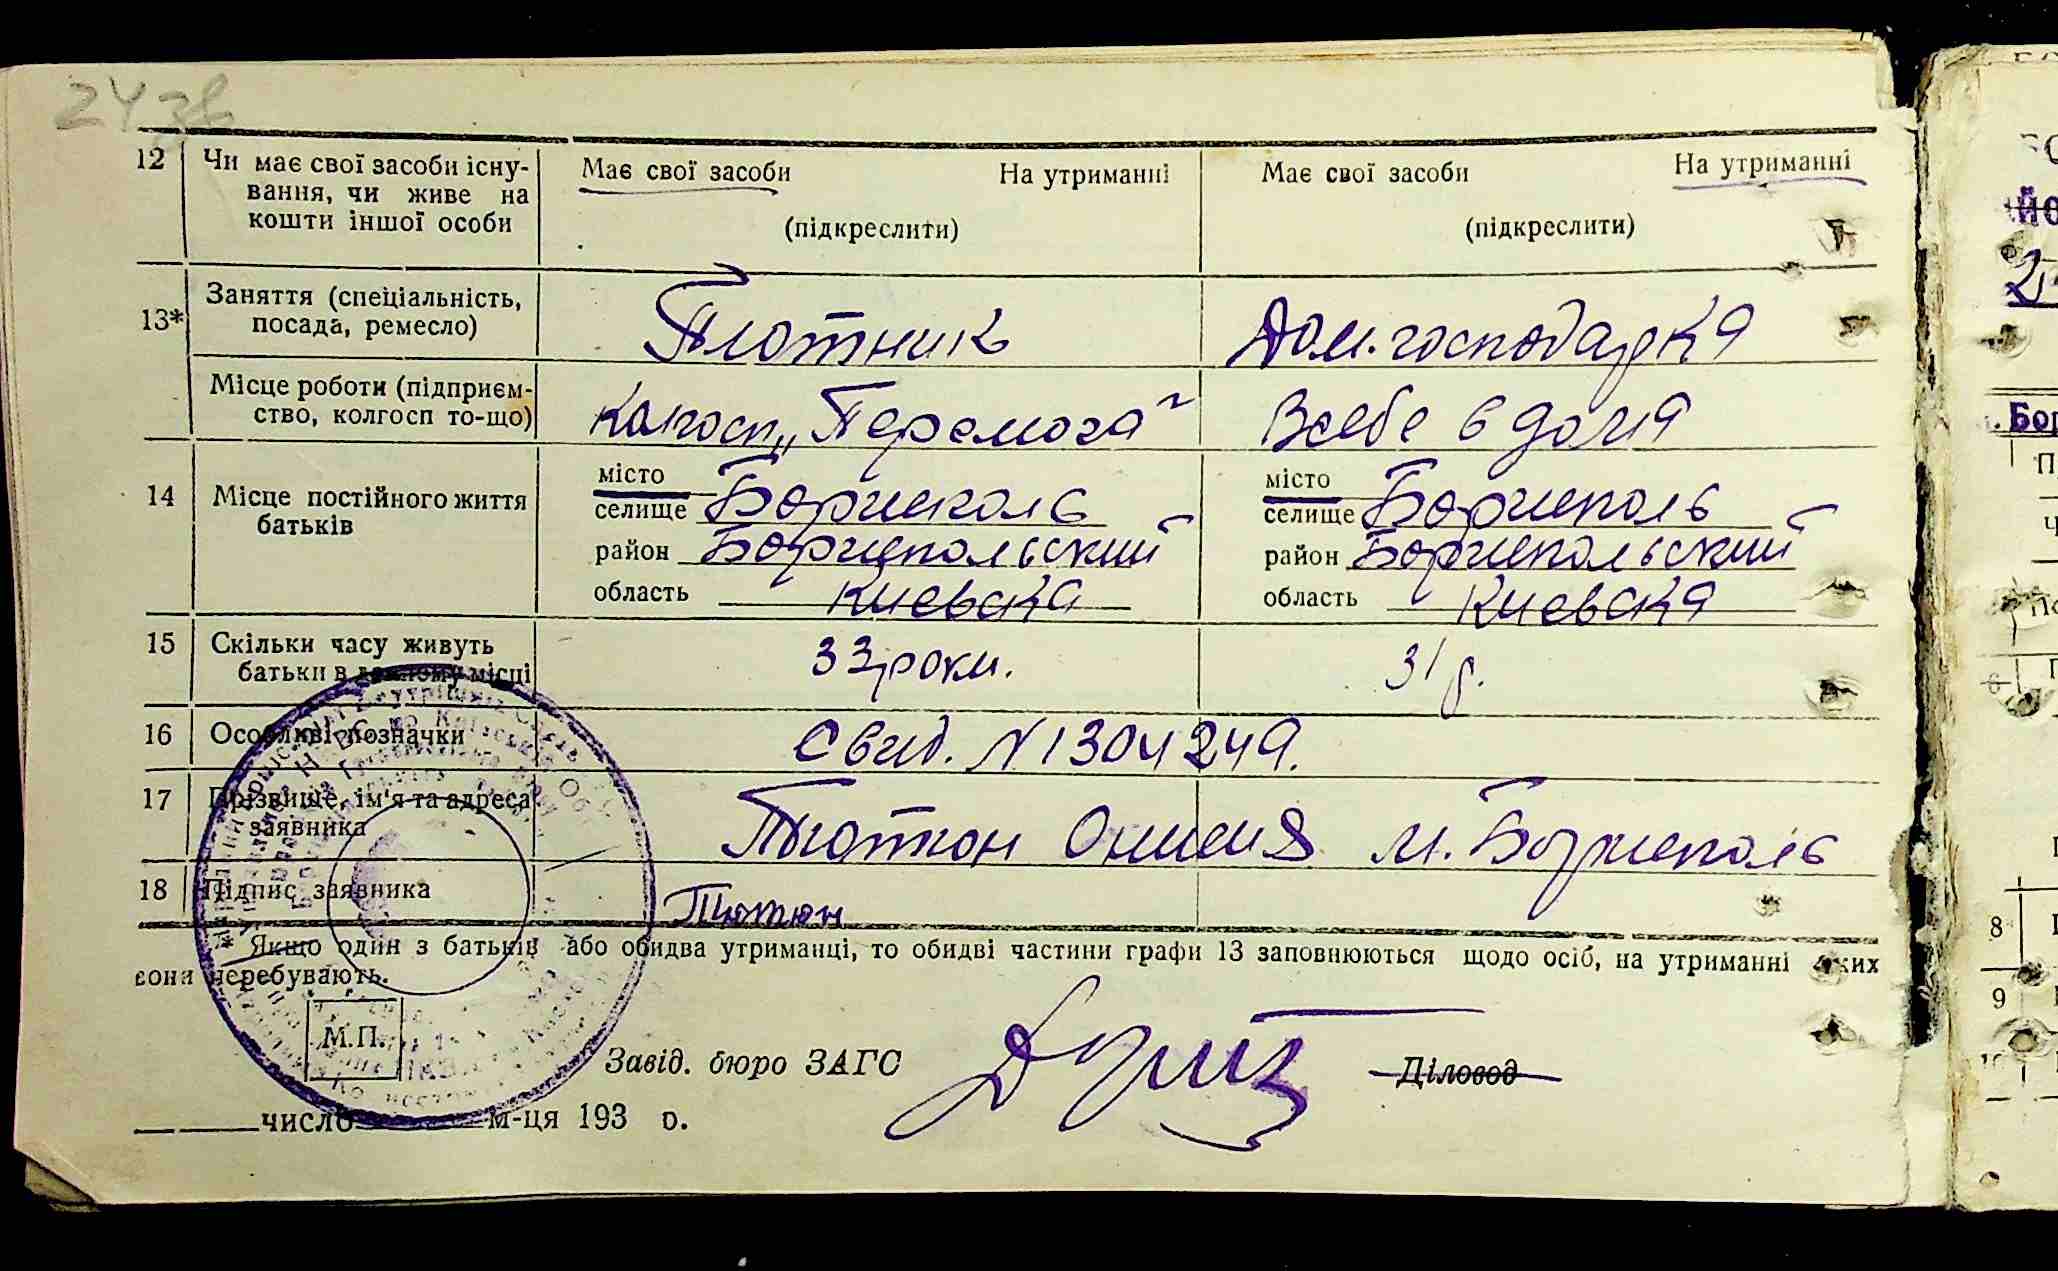 24 зв
12 Чи має свої засоби існу- Має свої засоби На утриманні Має свої засоби На утриманні
вання, чи живе на
кошти іншої особи (підкреслити) (підкреслити)
13* Заняття (спеціальність, посада, ремесло) Плотник Дом. господарка
Місце роботи (підприєм- Колгосп „Перемога" В себе в дома
ство, колгосп то-що)
14 Місце постійного життя батьків
місто
селище Бориспль
район Бориспольский
область Киевска
місто
селище Борисполь
район Бориспольский
область Киевска
15 Скільки часу живуть 33 роки. 31 р.
батьки в даному місці
16 Особливі позначки Свид. №1304249.
17 Прізвище, ім'я та адреса Тютюн м. Борисполь
заявника
18 Підпис заявника Тютюн
* Якщо один з батьків або обидва утриманці, то обидві частини графи 13 заповнюються щодо осіб, на утриманні яких
вони перебувають.
М.П.
Завід. бюро ЗАГС Діловод
число м-ця 193 р.
8
9
10